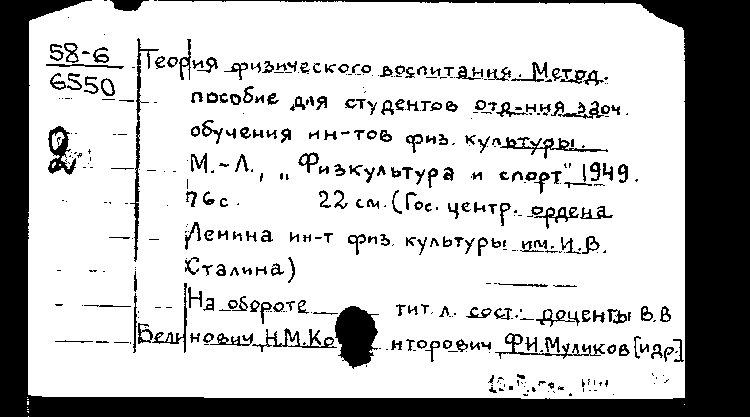 58-6
6550
Теория физического воспитания. Метод.
пособие для студентов отд-ния заоч.
обучения ин-тов физ. культуры.
М.-Л., „Физкультура и спорт", 1949.
76 с. 22 см. (Гос. центр. ордена
Ленина ин-т физ. культуры им. И.В.
Сталина)
На обороте тит. л. сост.: доценты В.В
Белинович, Н.М. Ко нторович, Ф.И. Муликов [и др.]